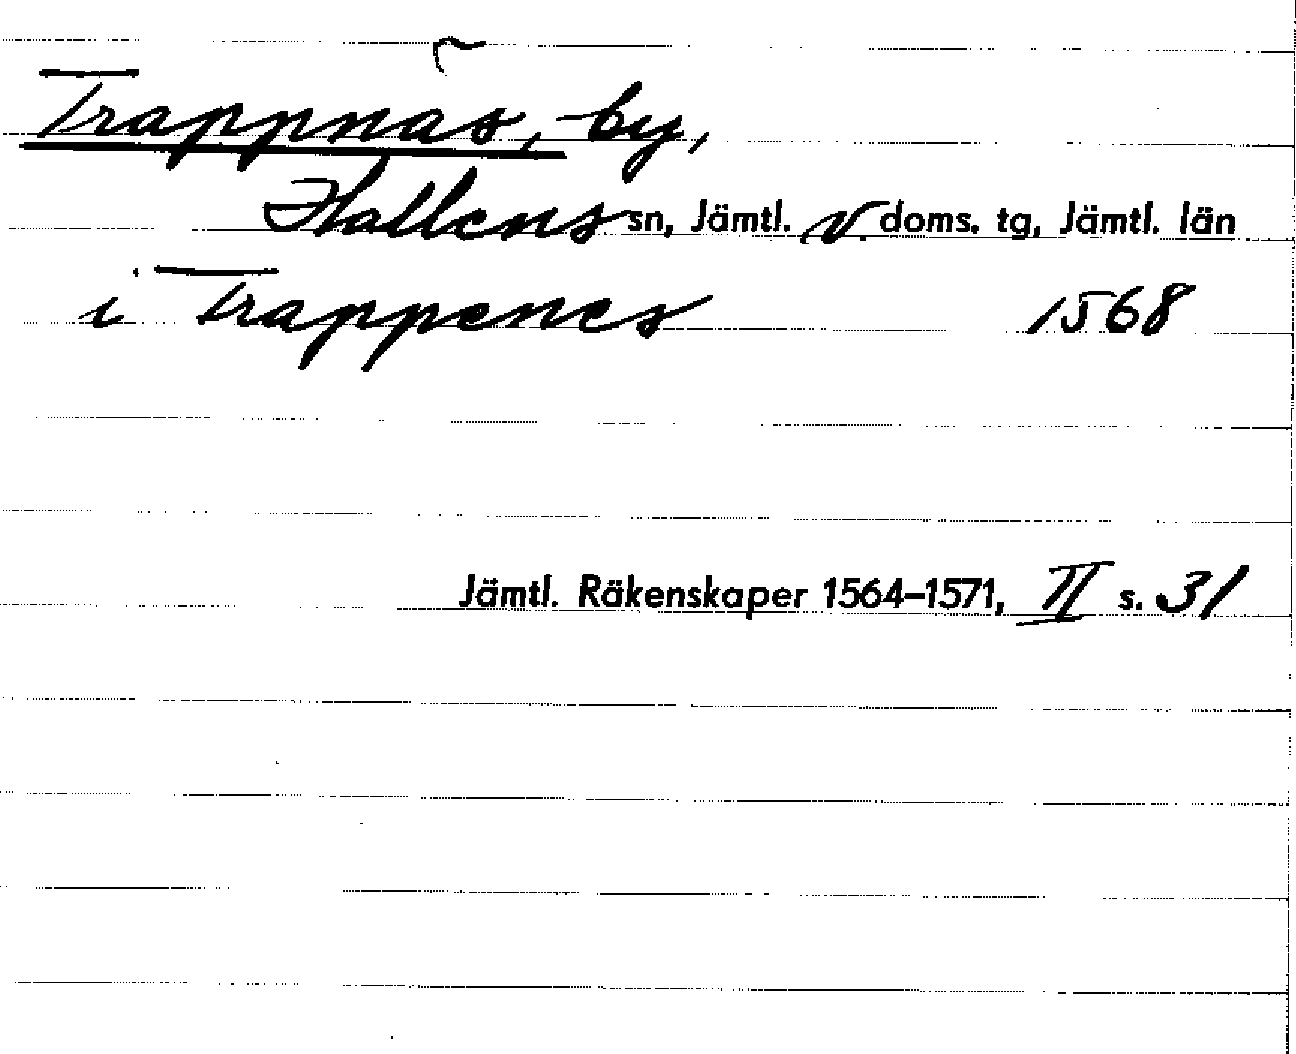 Trappnäs, by,
Hallens sn, Jämtl. v. doms. tg, Jämtl. län
i Trappenes 1568
Jämtl. Räkenskaper 1564–1571, II s. 31